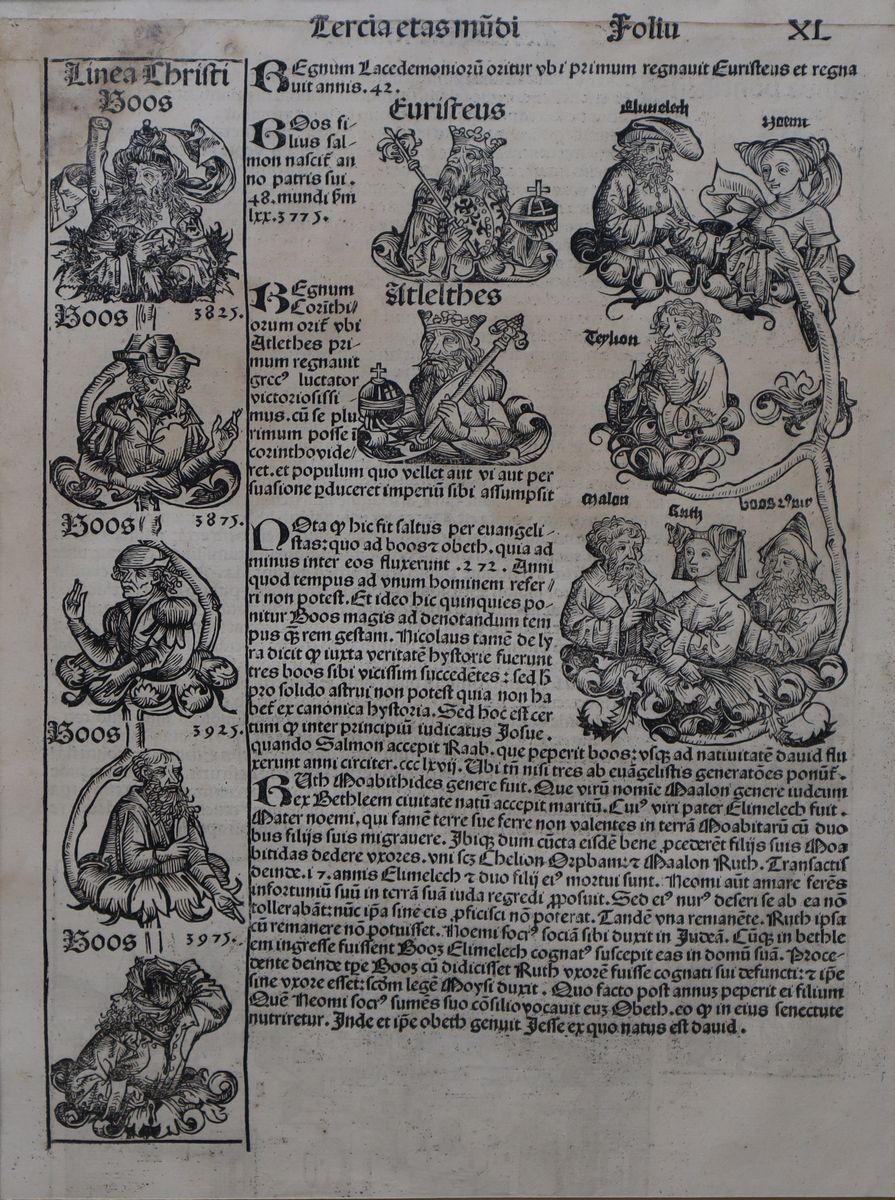 Tercia etas mūdi Foliū XL
Linea Christi
Boos
Boos 3825.
Boos 3875.
Boos 3925.
Boos 3975.
REgnum Lacedemoniorū oritur vbi primum regnauit Euristeus et regna
uit annis .42.
Euristeus
Elimelech
Noemi
BOos fi-
lius sal-
mon nascit̄ an
no patris sui .
48. mundi v̄o
lxx.3775.
REgnum
Corīthi/
orum orit̄ vbi
Atlethes pri-
mum regnauit
grecꝰ luctator
victoriosissi
mus.cū se plu
rimum posse ī
corintho vide/
ret.et populum quo vellet aut vi aut per
suasione ꝑduceret imperiū sibi assumpsit
Atlelthes
Teylion
Malon
Ruth
NOta ꝙ hic fit saltus per euangeli-
stas: quo ad boos ⁊ obeth. quia ad
minus inter eos fluxerunt .272. Anni
quod tempus ad vnum hominem refer/
ri non potest. Et ideo hic quinquies po-
nitur Boos magis ad denotandum tem
pus q̄ȝ rem gestam. Nicolaus tamē de ly
ra dicit ꝙ iuxta veritatē hystorie fuerunt
tres boos sibi vicissim succedētes: sed h̄
pro solido astrui non potest quia non ha
bet̄ ex canonica hystoria. Sed hoc est cer
tum ꝙ inter principiū iudicatus Josue.
quando Salmon accepit Raab. que peperit boos: vsqȝ ad natiuitatē dauid flu
xerunt anni circiter. ccc lxvii. Vbi tn̄ nisi tres ab euāgelistis generatōes ponūt̄.
RUth Moabithides genere fuit. Que virū nomīe Maalon genere iudeum
ex Bethleem ciuitate natū accepit maritū. Cuiꝰ viri pater Elimelech fuit.
Mater noemi. qui famē terre sue ferre non valentes in terrā Moabitarū cū duo
bus filijs suis migrauere. Ibiqȝ dum cūcta eisdē bene ꝓcederēt filijs suis Moa
bitidas dedere vxores. vni scȝ Chelion Orpham: ⁊ Maalon Ruth. Transactis
deinde .17. annis Elimelech ⁊ duo filij eiꝰ mortui sunt. Neomi aūt amare ferēs
infortuniū suū in terrā suā iuda regredi ꝓposuit. Sed eiꝰ nurꝰ deseri se ab ea nō
tollerabāt: nūc ip̄a sine eis ꝓficisci nō poterat. Tandē vna remanēte. Ruth ipsa
cū remanere non potuisset. Noemi socrꝰ sociā sibi duxit in Judeā. Cūqȝ in bethle
em ingresse fuissent Booȝ Elimelech cognatꝰ suscepit eas in domū suā. Proce-
dente deinde tp̄e Booȝ cū didicisset Ruth vxorē fuisse cognati sui defuncti: ⁊ ip̄e
sine vxore esset: scd̄m legē Moysi duxit. Quo facto post annuȝ peperit ei filium
Quē Neomi socrꝰ sumēs suo cōsilio vocauit euȝ Obeth. eo ꝙ in eius senectute
nutriretur. Inde et ip̄e obeth genuit Jesse ex quo natus est dauid.